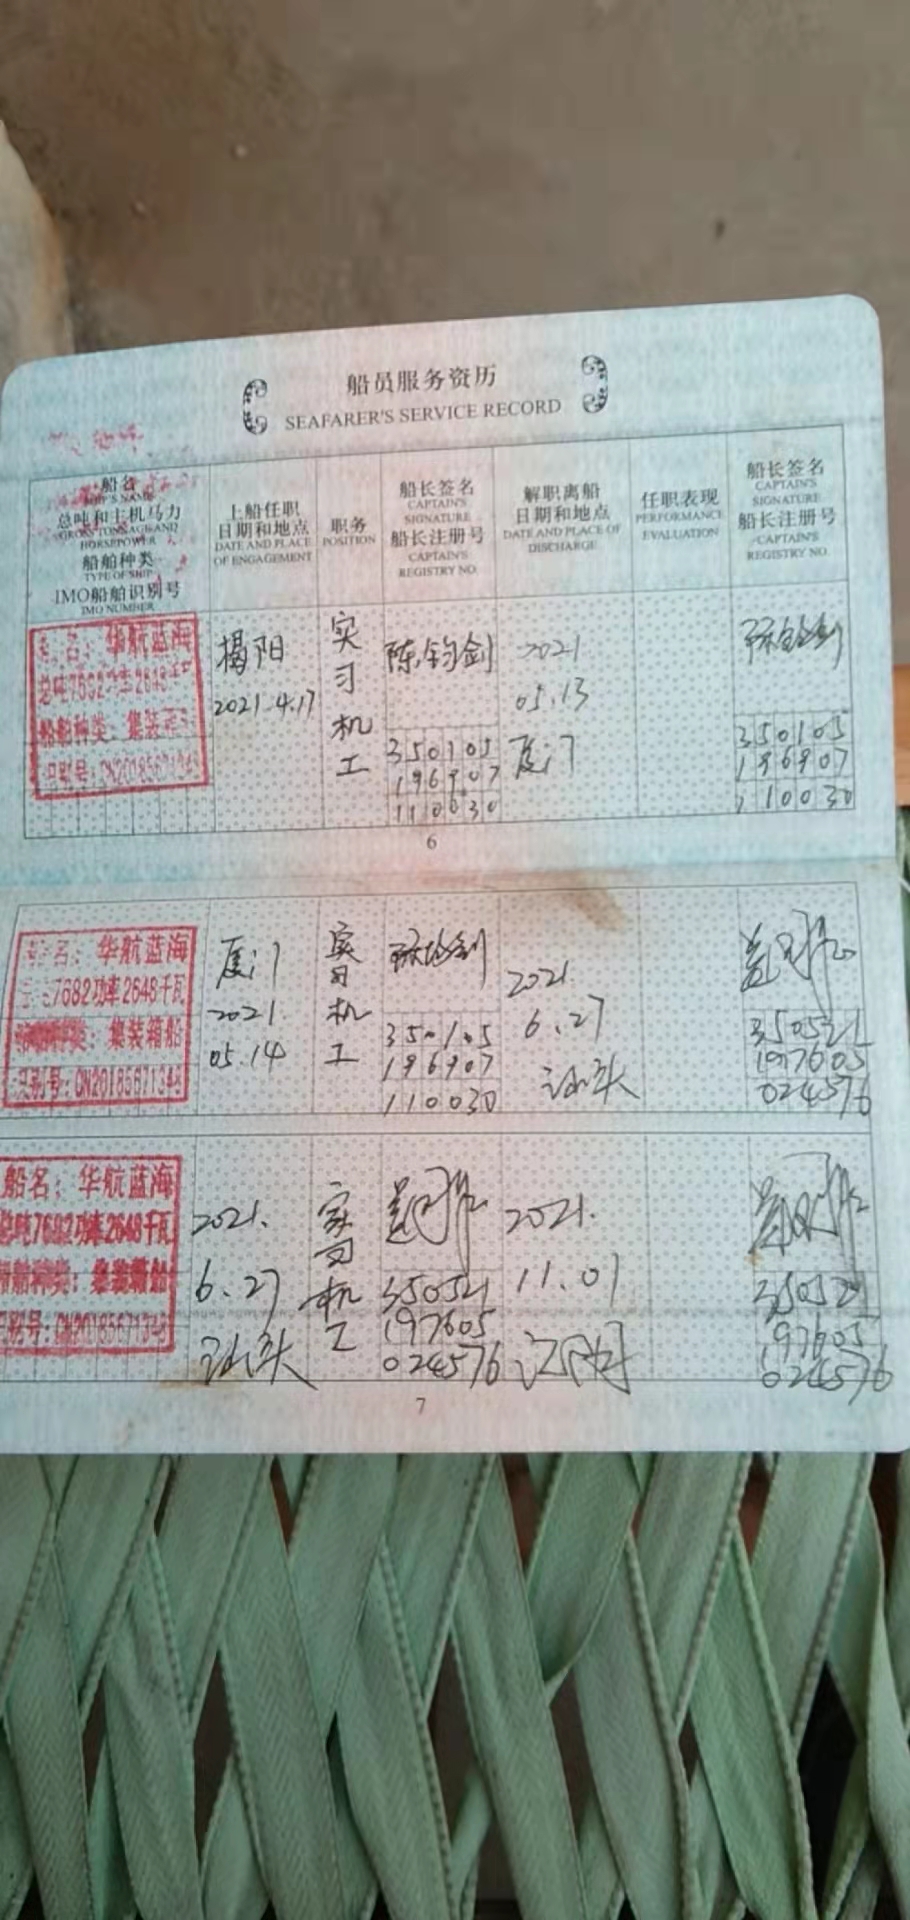 船员服务资历
SEAFARER'S SERVICE RECORD
船名
SHIP'S NAME
总吨和主机马力
GROSS TONNAGE AND
HORSEPOWER
船舶种类
TYPE OF SHIP
IMO船舶识别号
IMO NUMBER
上船任职
日期和地点
DATE AND PLACE
OF ENGAGEMENT
职务
POSITION
船长签名
CAPTAIN'S
SIGNATURE
船长注册号
CAPTAIN'S
REGISTRY NO.
解职离船
日期和地点
DATE AND PLACE OF
DISCHARGE
任职表现
PERFORMANCE
EVALUATION
船长签名
CAPTAIN'S
SIGNATURE
船长注册号
CAPTAIN'S
REGISTRY NO.
名：华航蓝海
总吨7682功率2648千瓦
船舶种类：集装箱
识别号：CN20185671348
揭阳
2021.4.17
实
习
机
工
陈钧剑
350105
196907
110030
2021
05.13
厦门
陈钧剑
350105
196907
110030
6
名：华航蓝海
7682功率2648千瓦
船舶种类：集装箱船
识别号：CN20185671348
厦门
2021.
05.14
实
习
机
工
陈钧剑
350105
196907
110030
2021.
6.27
汕头
350521
197605
024576
船名：华航蓝海
总吨7682功率2648千瓦
船舶种类：集装箱船
识别号：CN20185671348
2021.
6.27
汕头
实
习
机
工
350521
197605
024576
2021.
11.01
江阴
350521
197605
024576
7